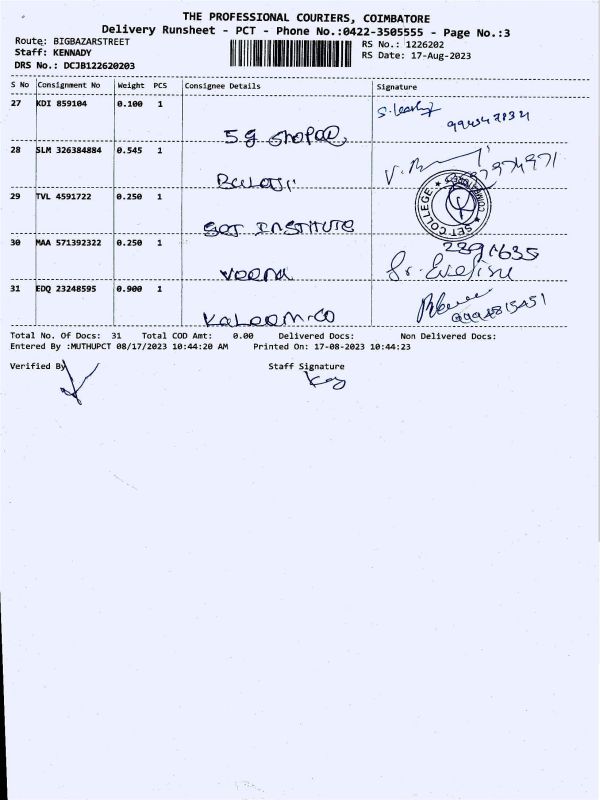 THE PROFESSIONAL COURIERS, COIMBATORE
Delivery Runsheet - PCT - Phone No.:0422-3505555 - Page No.:3
Route: BIGBAZARSTREET
RS No.: 1226202
Staff: KENNADY
RS Date: 17-Aug-2023
DRS No.: DCJB122620203
S No Consignment No Weight PCS Consignee Details Signature
27 KDI 859104 0.100 1
5g Shopee
28 SLM 326384884 0.545 1
Balaji
29 TVL 4591722 0.250 1
SET COLLEGE
SET INSTITUTE
30 MAA 571392322 0.250 1
2391635
Veena
Sr.
31 EDQ 23248595 0.900 1
Total No. Of Docs: 31 Total COD Amt: 0.00 Delivered Docs: Non Delivered Docs:
Entered By :MUTHUPCT 08/17/2023 10:44:20 AM Printed On: 17-08-2023 10:44:23
Verified By
Staff Signature